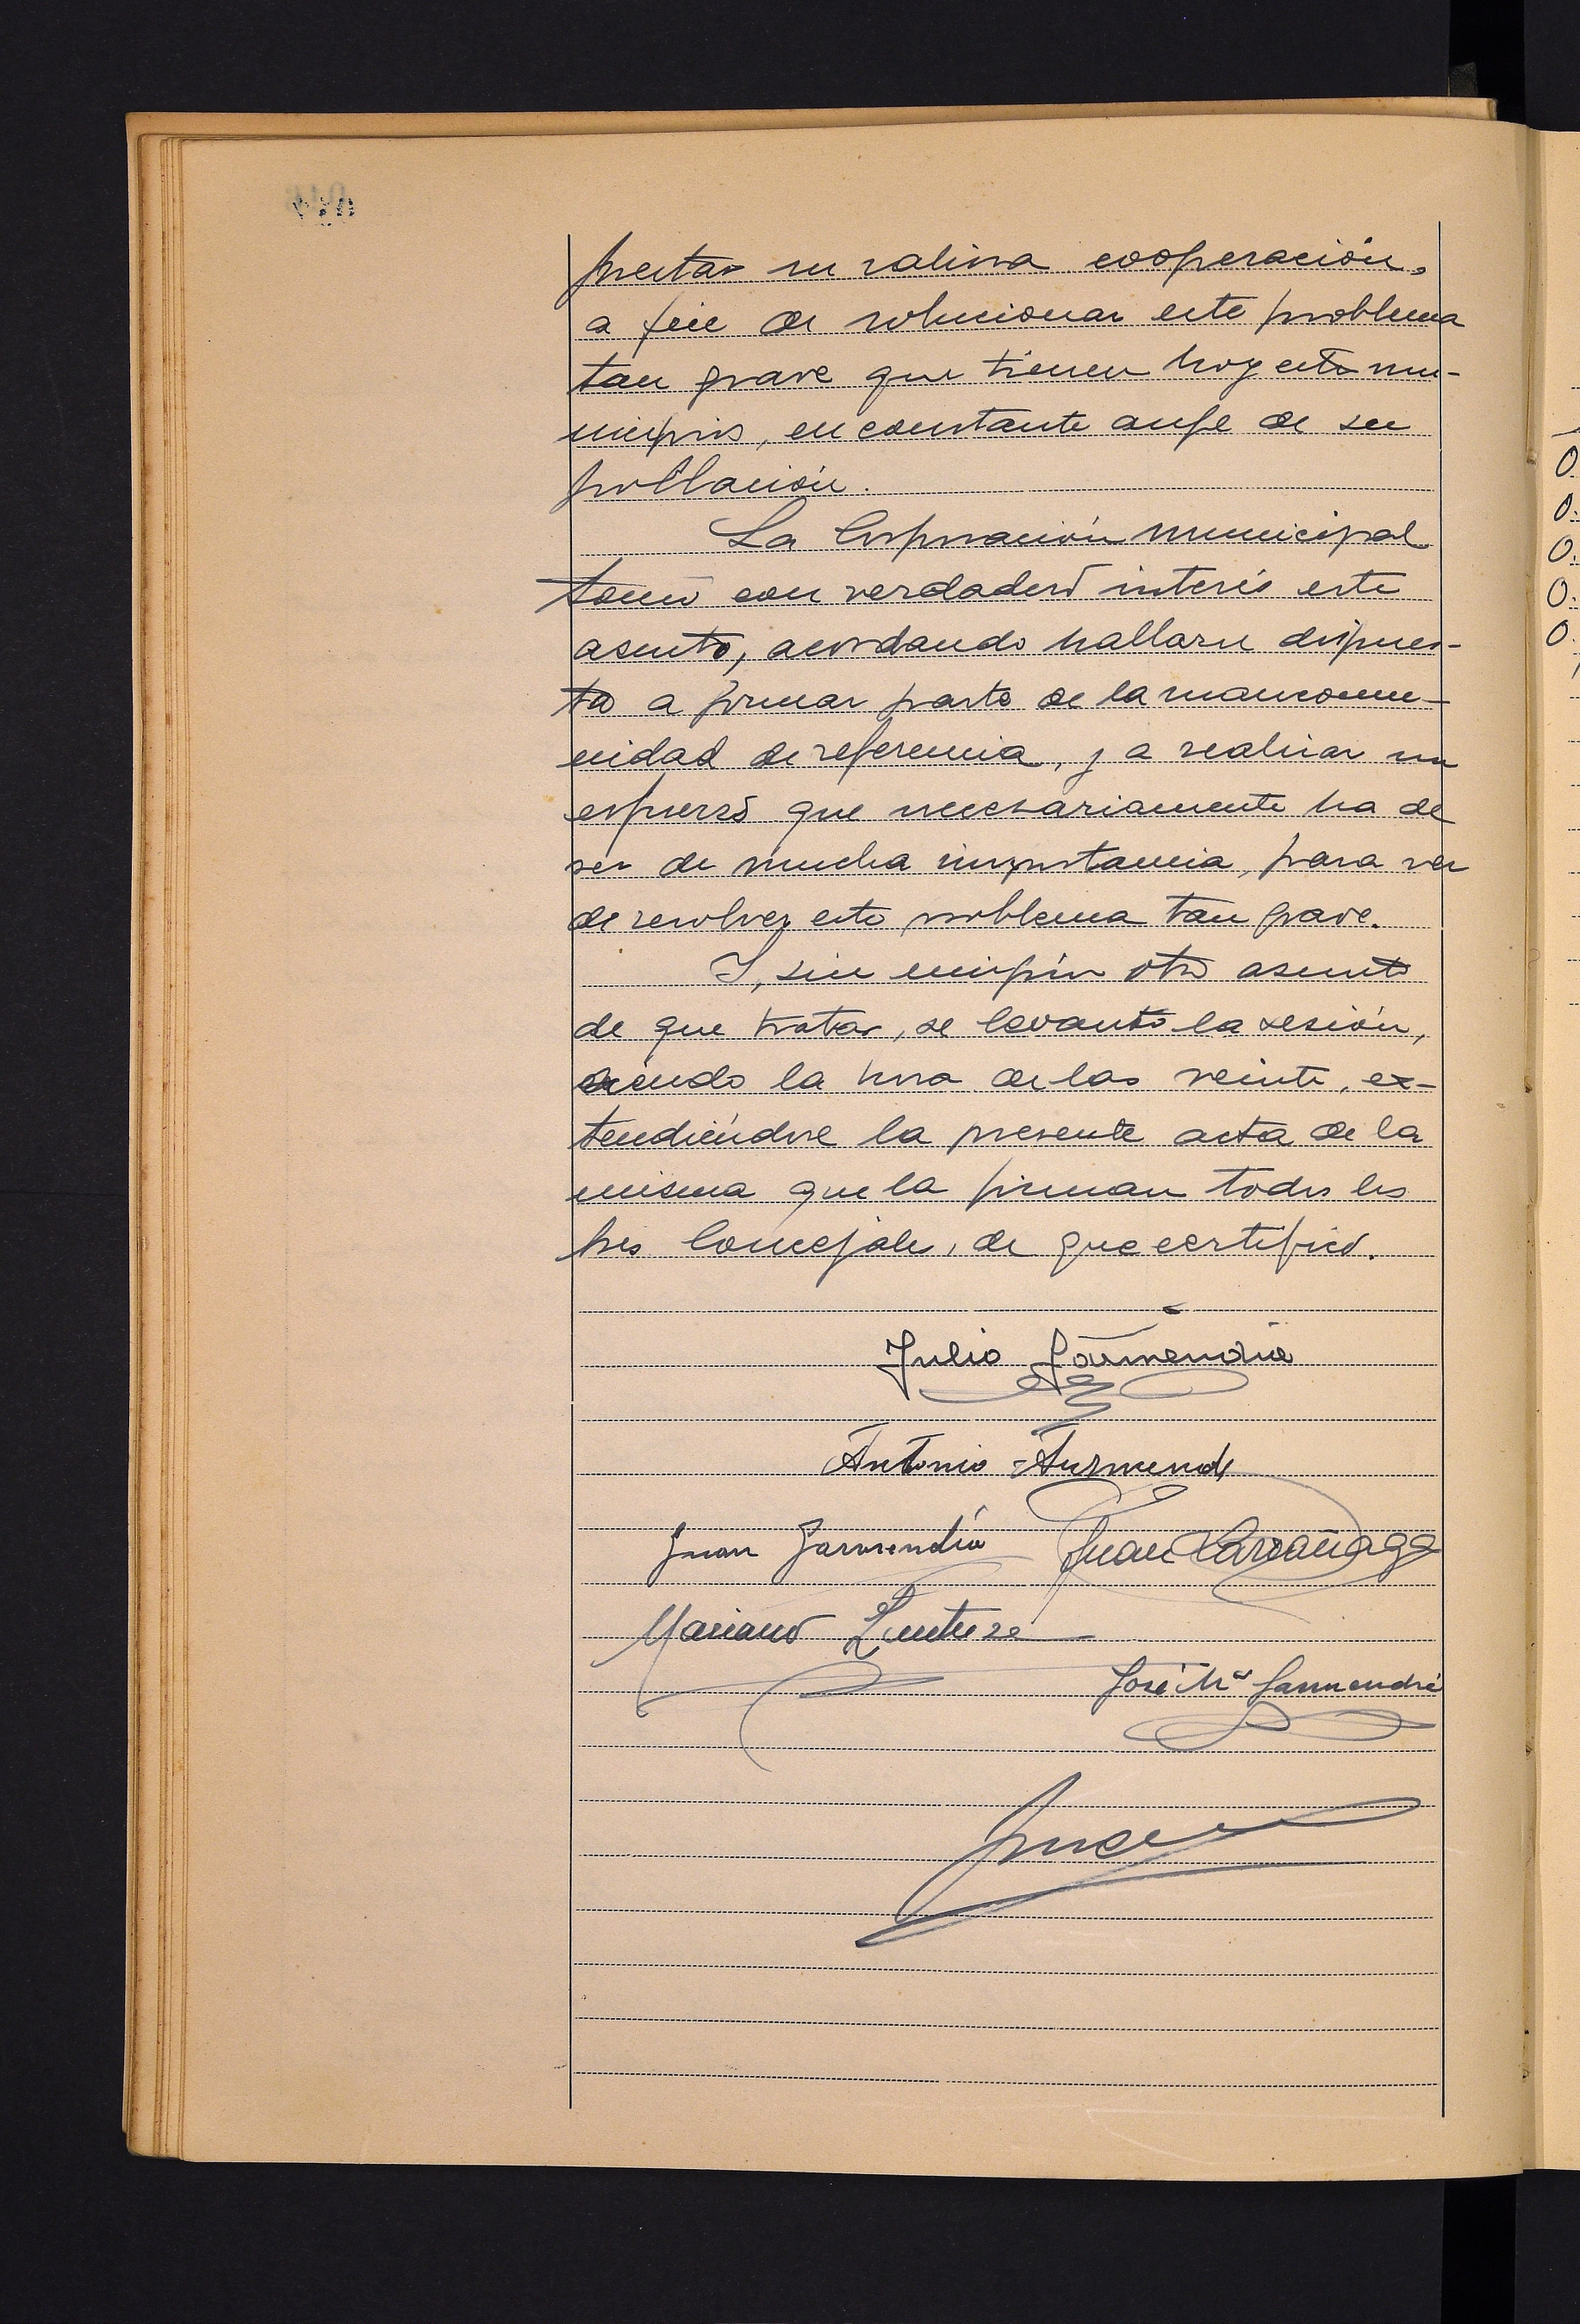 prestar su valiosa cooperación,
a fin de solucionar este problema
tan grave que tienen hoy esto mu-
nicipios, en constante auge de su
población.
La Corporación municipal
tomó con verdadero interés este
asunto, acordando hallarse dispues-
ta a formar parte de la mancomu-
nidad de referencia, y a realizar un
esfuerzo que necesariamente ha de
ser de mucha importancia, para ver
de resolver este problema tan grave.
Y, sin ningún otro asunto
de que tratar, se levantó la sesión,
siendo la hora de las veinte, ex-
tendiéndose la presente acta de la
misma que la firman todos los
Sres Concejales, de que certifico.
Julio Garmendia
Antonio
Juan Garmendia Juan Larrañaga
Mariano
José Mª Garmendia
0.
0.
0.
0.
0.